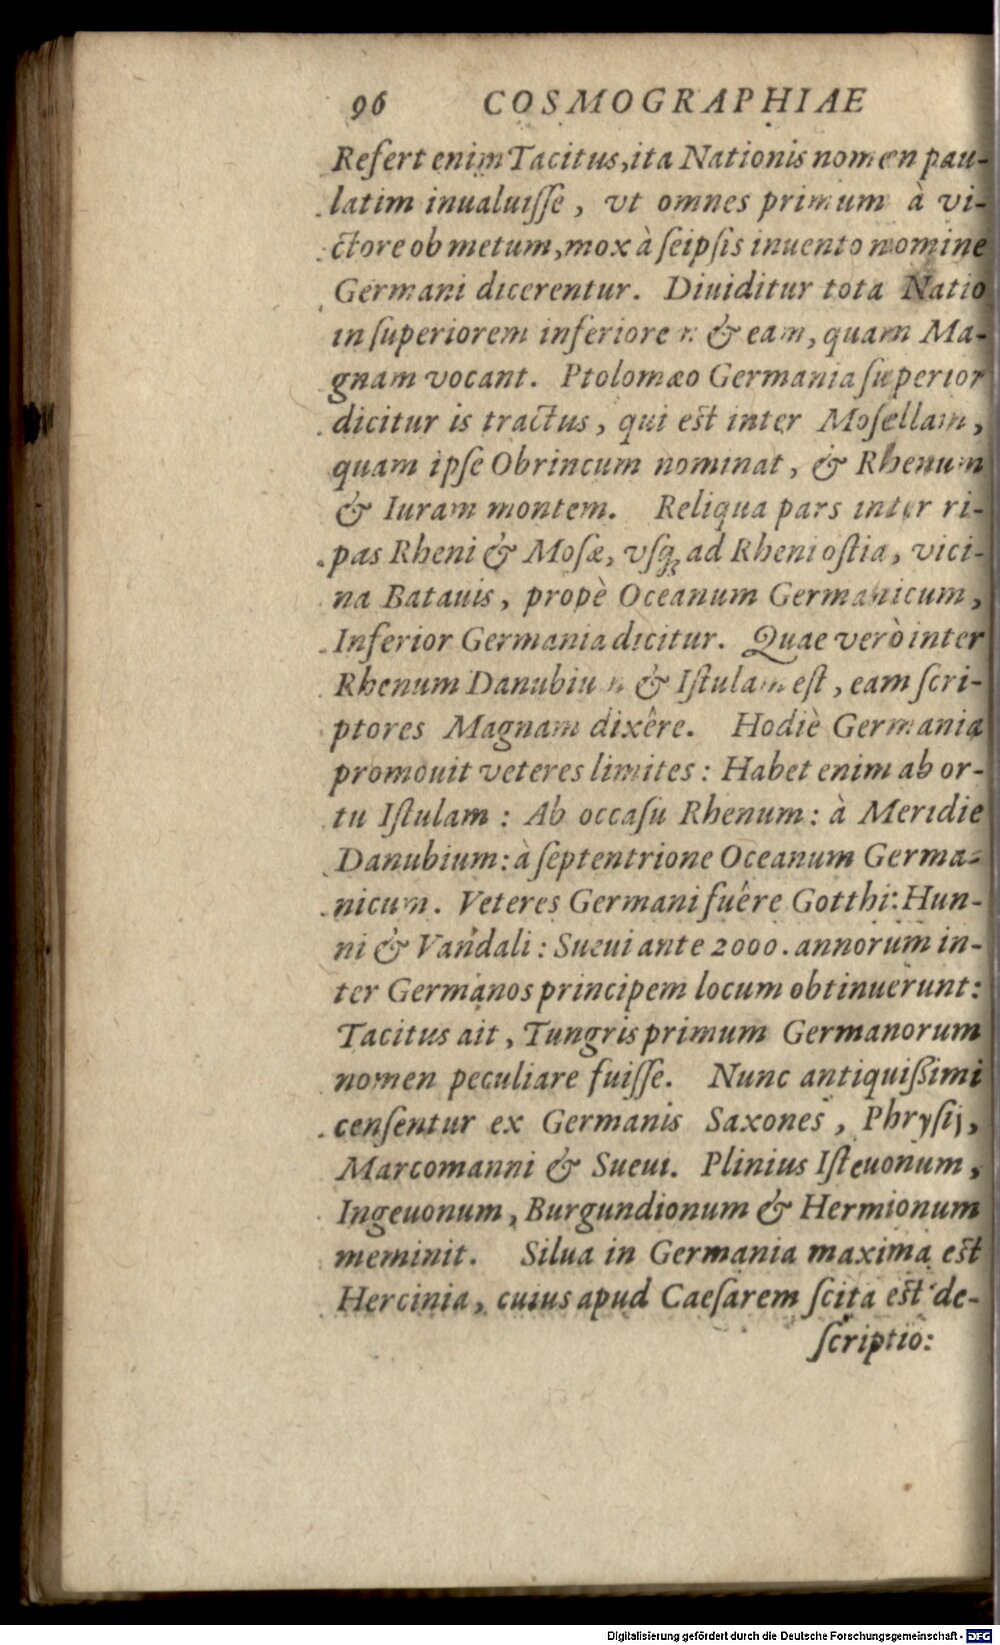 96 COSMOGRAPHIAE
Refert enim Tacitus, ita Nationis nomen pau-
latim inualuiſſe, vt omnes primum à vi-
ctore ob metum, mox à ſeipſis inuento nomine
Germani dicerentur. Diuiditur tota Natio
in ſuperiorem inferiorem & eam, quam Ma-
gnam vocant. Ptolomæo Germania ſuperior
dicitur is tractus, qui est inter Moſellam,
quam ipſe Obrincum nominat, & Rhenum
& Iuram montem. Reliqua pars inter ri-
pas Rheni & Moſæ, vſq; ad Rheni oſtia, vici-
na Batauis, propè Oceanum Germanicum,
Inferior Germania dicitur. Quae verò inter
Rhenum Danubium & Iſtulam eſt, eam ſcri-
ptores Magnam dixêre. Hodiè Germania
promouit veteres limites: Habet enim ab or-
tu Iſtulam: Ab occaſu Rhenum: à Meridie
Danubium: à ſeptentrione Oceanum Germa-
nicum. Veteres Germani fuêre Gotthi: Hun-
ni & Vandali: Sueui ante 2000. annorum in-
ter Germanos principem locum obtinuerunt:
Tacitus ait, Tungris primum Germanorum
nomen peculiare fuiſſe. Nunc antiquiſſimi
cenſentur ex Germanis Saxones, Phryſij,
Marcomanni & Sueui. Plinius Iſteuonum,
Ingeuonum, Burgundionum & Hermionum
meminit. Silua in Germania maxima est
Hercinia, cuius apud Caeſarem ſcita est de-
ſcriptio:
Digitalisierung gefördert durch die Deutsche Forschungsgemeinschaft - DFG